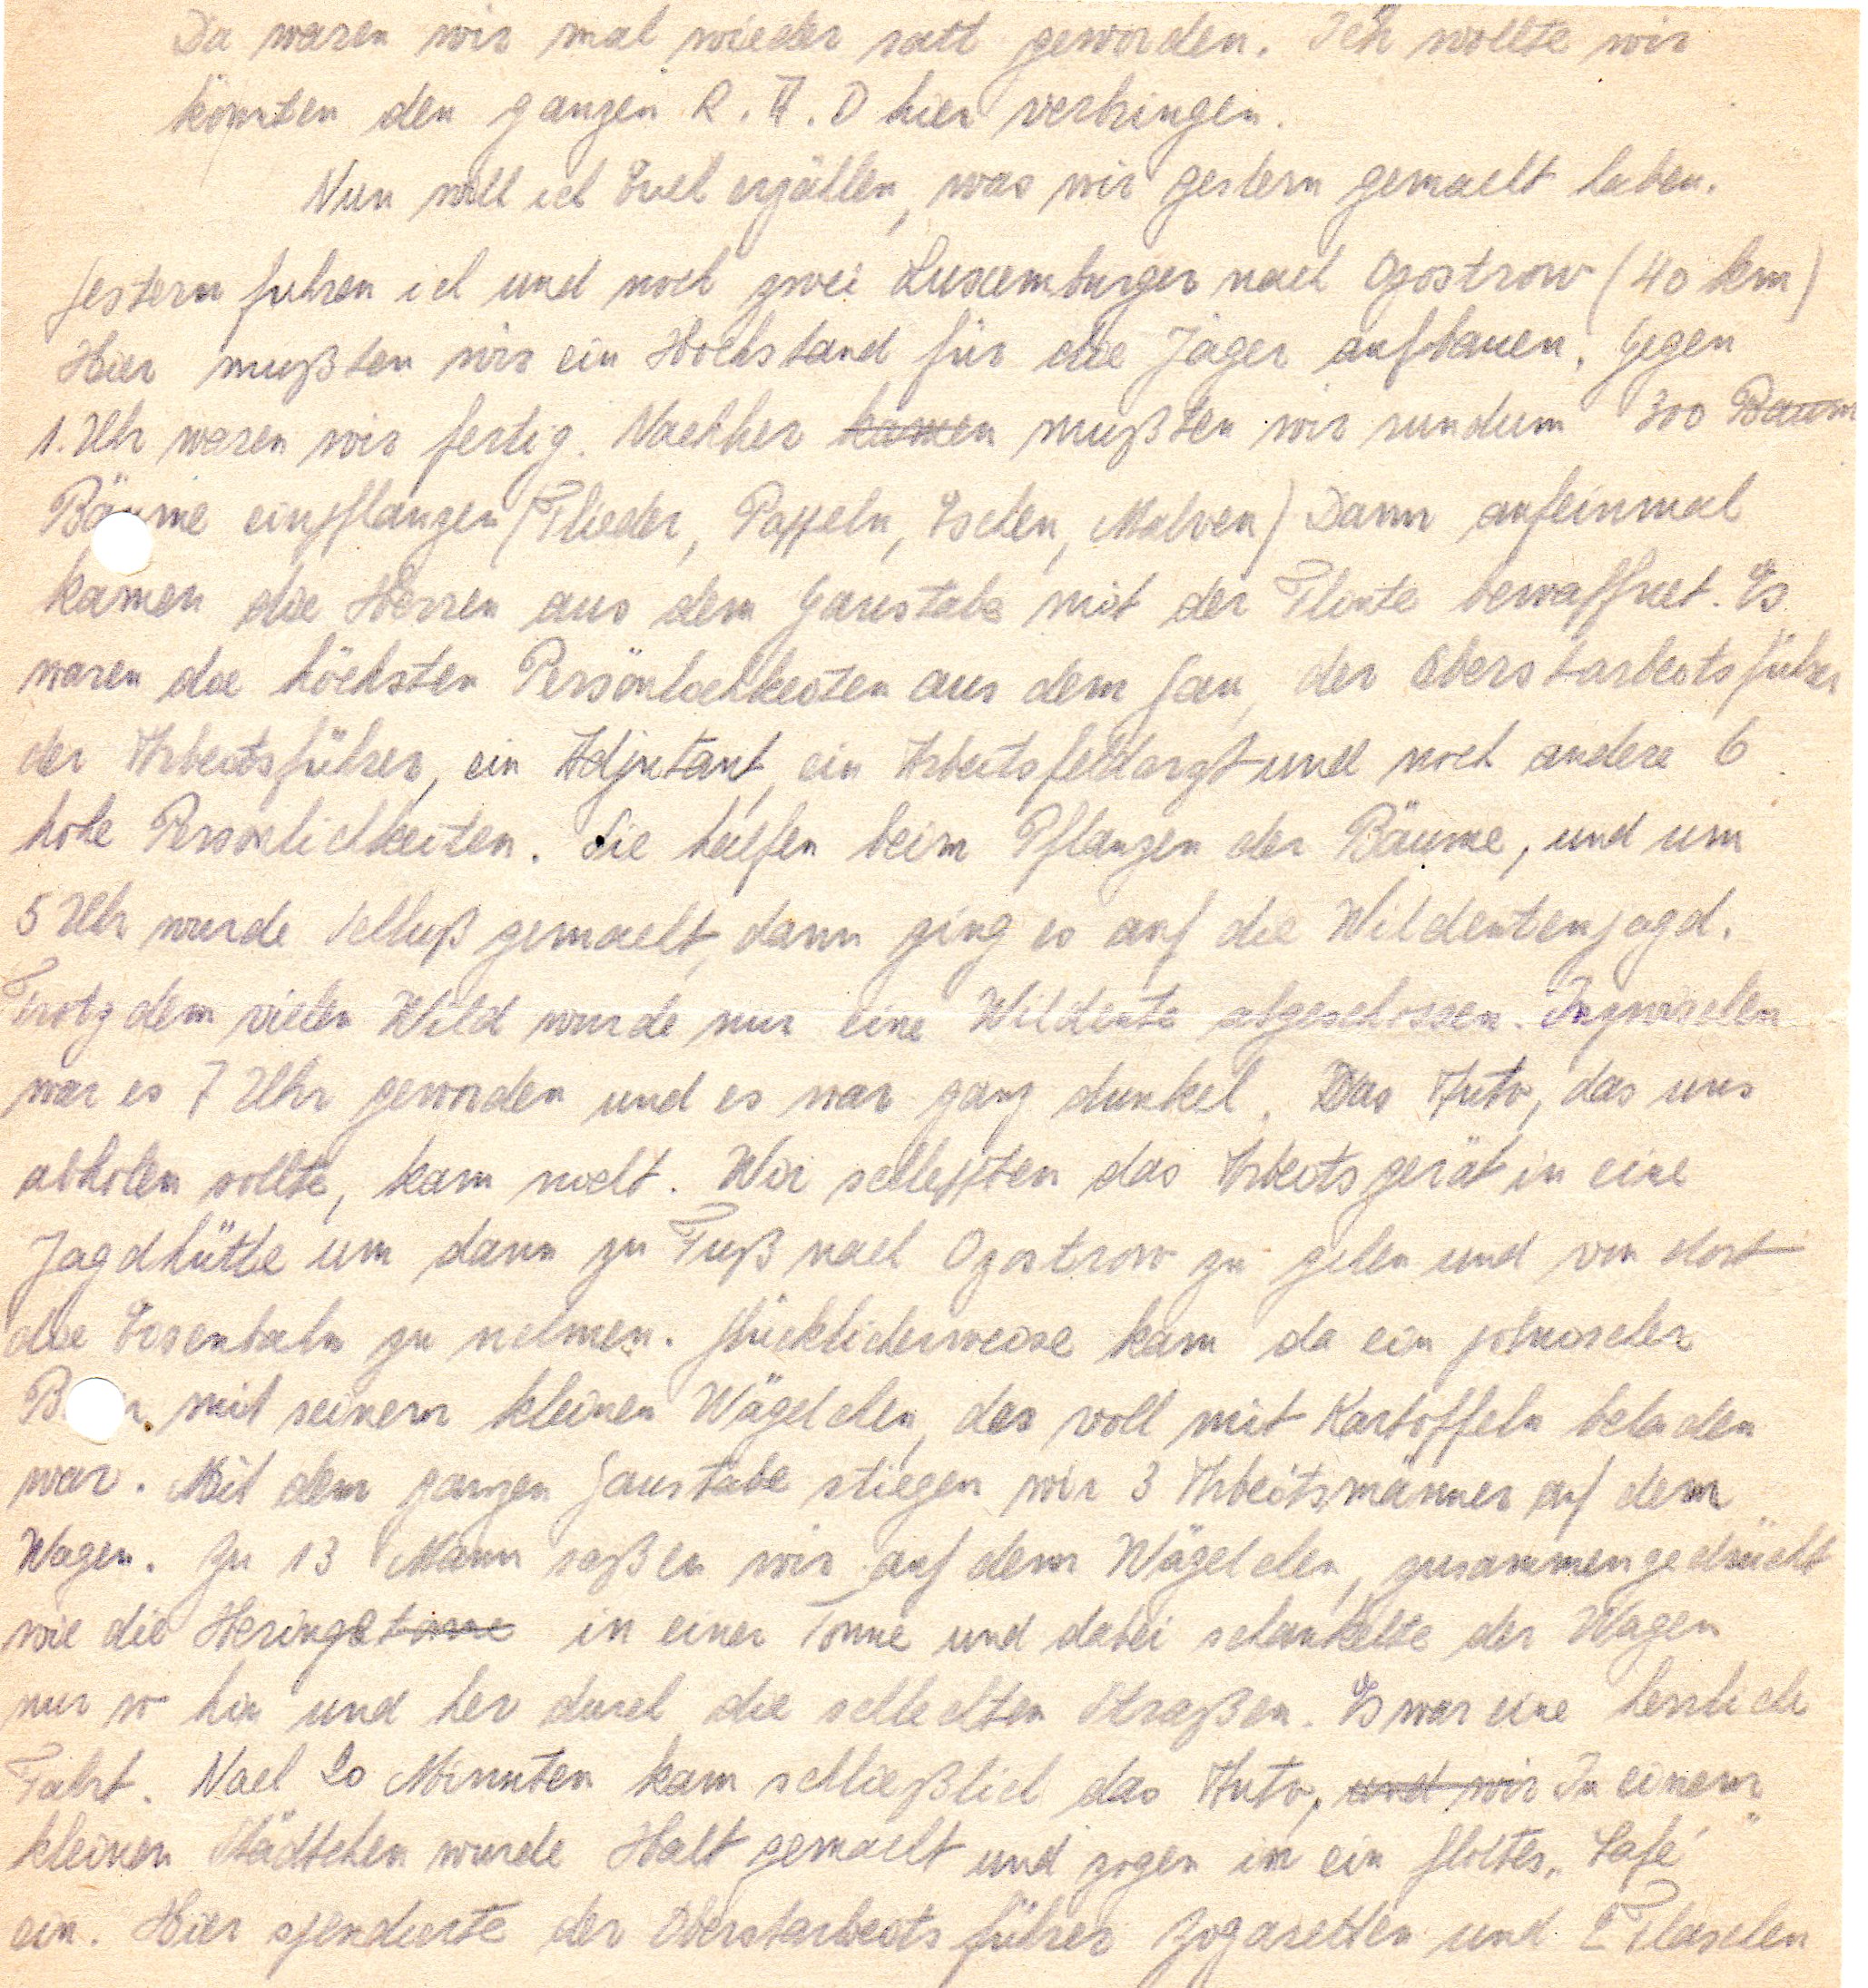 Da waren wir mal wieder satt geworden. Ich wollte wir
könnten den ganzen R.A.D hier verbringen.
Nun will ich Euch erzählen, was wir gestern gemacht haben.
Gestern fuhren ich und noch zwei Luxemburger nach Ozostrow (40 km)
Hier mußten wir ein Hochstand für die Jäger aufbauen. Gegen
1. Uhr waren wir fertig. Nachher kamen mußten wir rundum 300 Baum
Bäume einpflanzen (Flieder, Pappeln, Eschen, Malven) Dann aufeinmal
kamen die Herren aus dem Gaustabe mit der Flinte bewaffnet. Es
waren die höchsten Persönlichkeiten aus dem Gau, der Oberstarbeitsführer
der Arbeitsführer, ein Adjutant, ein Arbeitsfeldarzt und noch andere 6
hohe Persönlichkeiten. Sie halfen beim Pflanzen der Bäume, und um
5 Uhr wurde Schluß gemacht, dann ging es auf die Wildentenjagd.
Trotz dem vielen Wild wurde nur eine Wildente abgeschossen. Inzwischen
war es 7 Uhr geworden und es war ganz dunkel. Das Auto, das uns
abholen sollte, kam nicht. Wir schleppten das Arbeitsgerät in eine
Jagdhütte um dann zu Fuß nach Ozostrow zu gehen und von dort
die Eisenbahn zu nehmen. Glücklicherweise kam da ein polnischer
B r mit seinem kleinen Wägelchen, der voll mit Kartoffeln beladen
war. Mit dem ganzen Gaustabe stiegen wir 3 Arbeitsmänner auf dem
Wagen. Zu 13 Mann saßen wir auf dem Wägelchen, zusammengedrückt
wie die Heringstonne in einer Tonne und dabei schaukelte der Wagen
nur so hin und her durch die schlechten Straßen. Es war eine herrlich
Fahrt. Nach 20 Minuten kam schließlich das Auto, und wir In einem
kleinen Städtchen wurde Halt gemacht und zogen in ein flottes „Café"
ein. Hier spendierte der Oberstarbeitsführer Zigaretten und 2 Flaschen